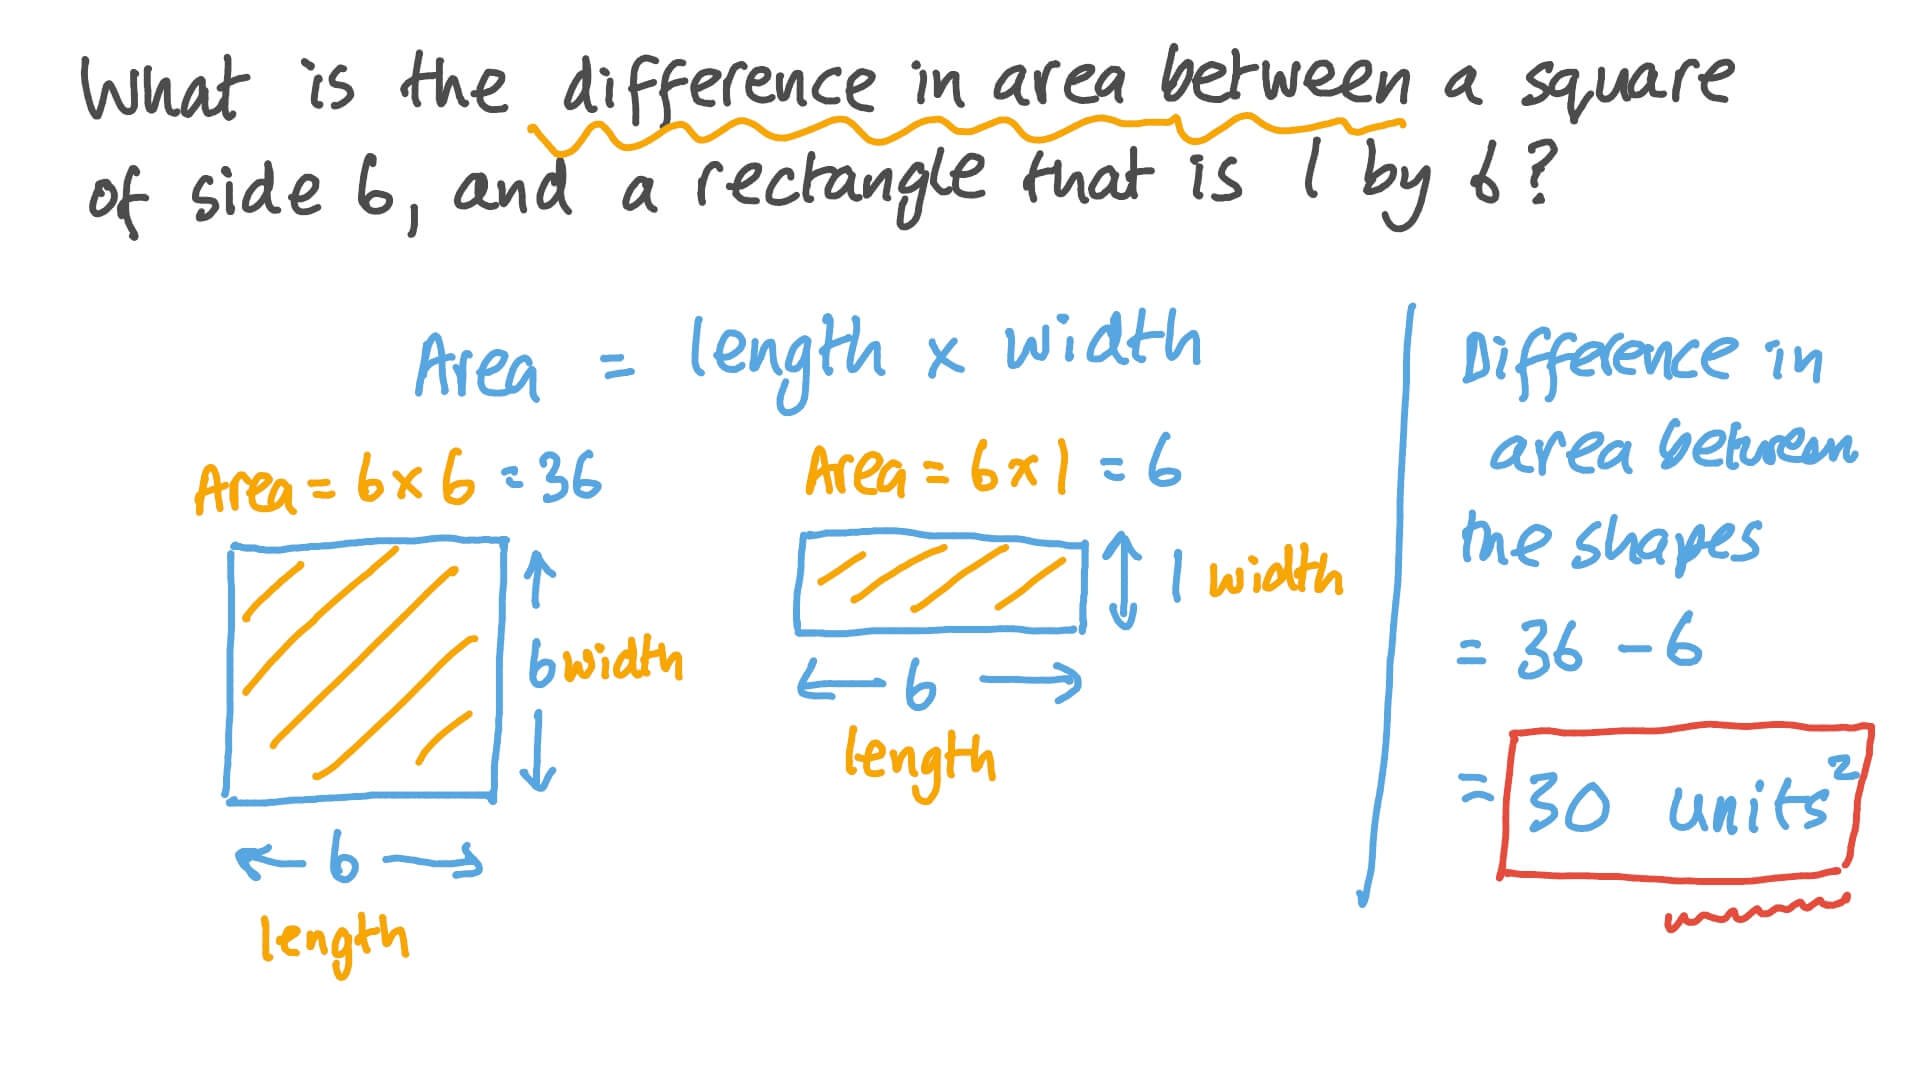 What is the difference in area between a square
of side 6, and a rectangle that is 1 by 6?
Area = length x width
Area = 6 x 6 = 36
6 width
6
length
Area = 6 x 1 = 6
1 width
6
length
Difference in
area between
the shapes
= 36 - 6
= 30 units²